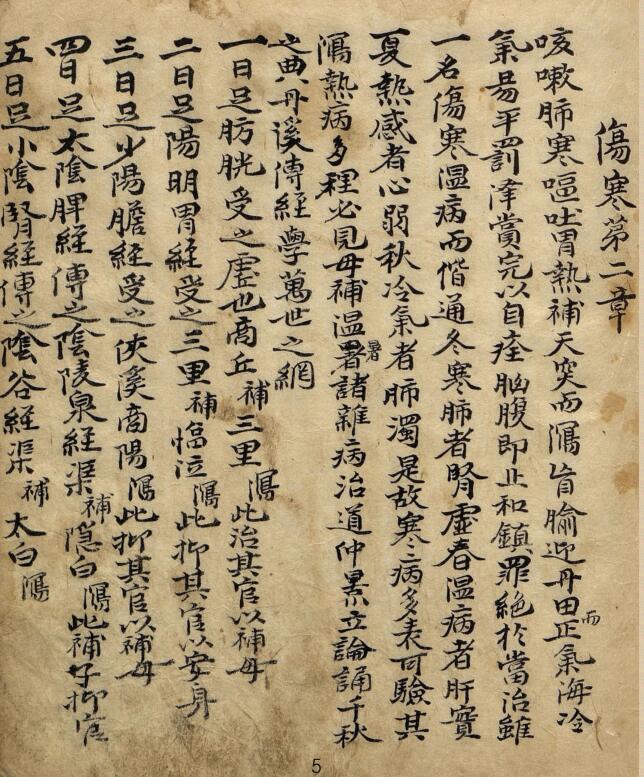 傷寒第二章
咳嗽肺寒嘔吐胃熱補天突而瀉肓腧迎丹田正而氣海冷
氣易平罰潭賞完以自痊胸腹即止和鎮罪絕扵當治雖
一名傷寒溫病而偕通冬寒肺者腎虛春溫病者肝實
夏熱感者心弱秋冷氣者肺濁是故寒之病多表可驗其
瀉熱病多裡必見毋補溫暑諸雜病治道仲景立論誦千秋
之典丹溪傳經學萬世之網
一日足膀胱受之虛也商丘補三里瀉此治其官以補母
二日足陽明胃經受之三里補臨泣瀉此抑其官以安身
三日足少陽膽經受之俠溪商陽瀉此抑其官以補母
四日足太陰脾經傳之陰陵泉經渠補隐白瀉此補子抑官
五日足小陰腎經傳之陰谷經渠補太白瀉
5